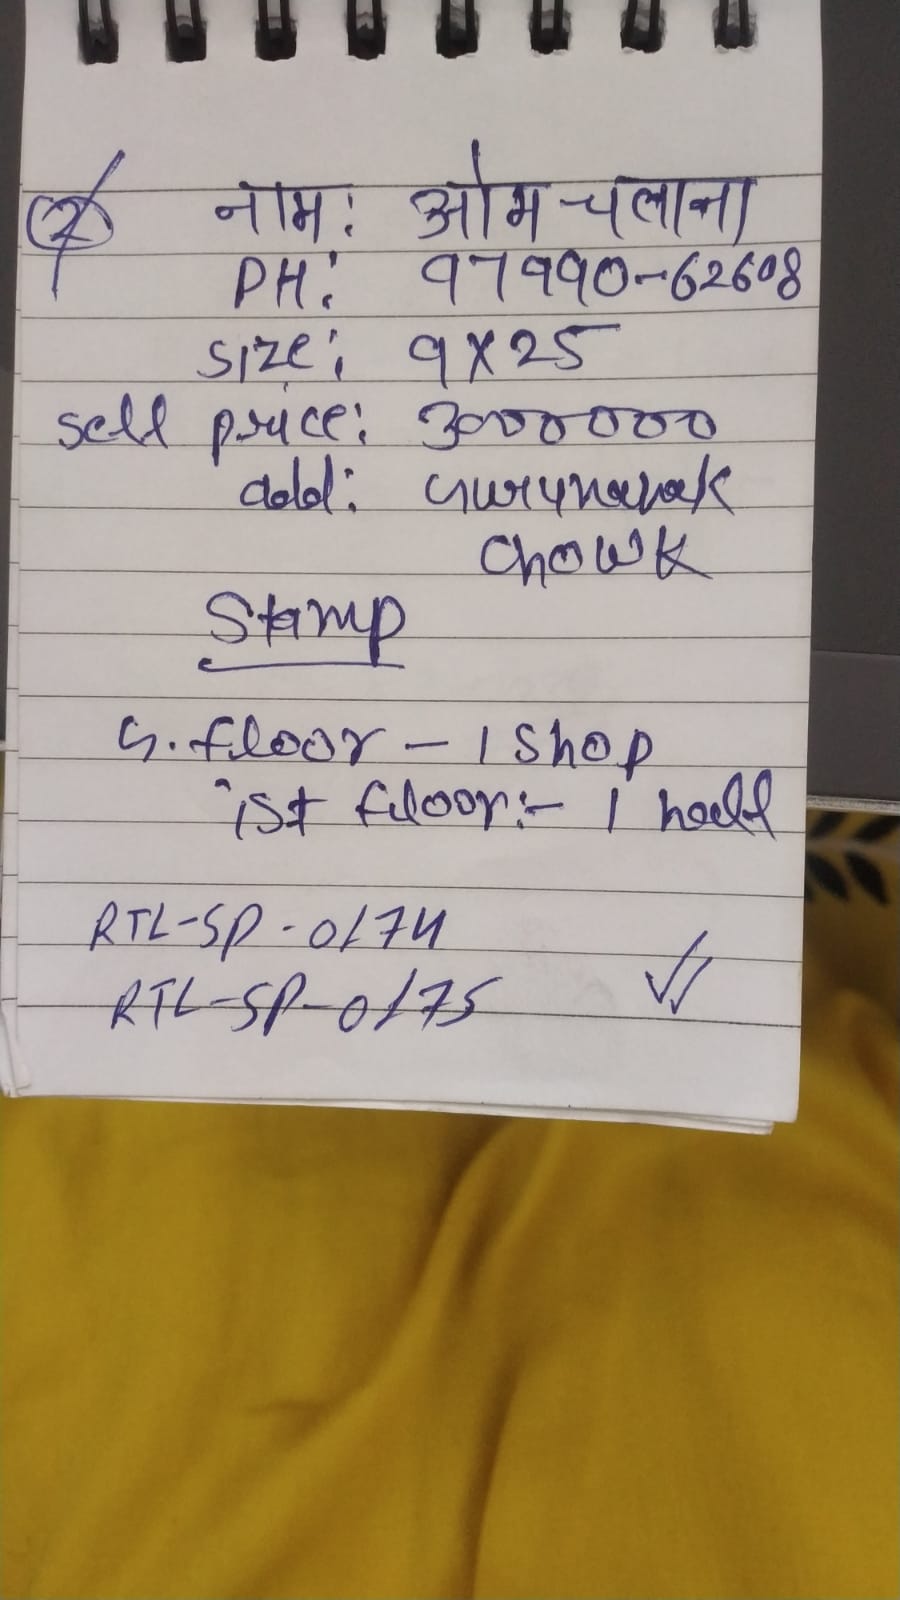 2 नाम: ओम चलाना
PH: 97990-62608
Size: 9X25
sell price: 3000000
add: Gurunanak
Chowk
Stamp
G. floor - 1 Shop
1st floor:- 1 hall
RTL-SP-0174
RTL-SP-0175